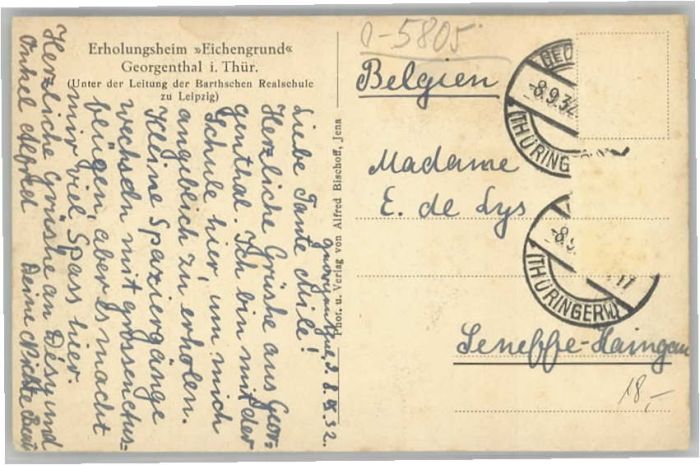 Erholungsheim »Eichengrund«
Georgenthal i. Thür.
(Unter der Leitung der Barthschen Realschule
zu Leipzig)
Georgenthal, d. 8. IX. 32.
Liebe Tante Mile!
Herzliche Grüshe aus Geor-
genthal. Ich bin mit der
Schule hier, um mich
angiblich zu erholen.
Kleine Spaziergänge
wechseln mit grossen
beugen, aber es macht
mir viel Spass hier.
Herzliche Grüshe an Désy und
Onkel Alfred Deine Nichte
Phot. u. Verlag von Alfred Bischoff, Jena
0-5805
Belgien
Madame
E. de Lys
Seneffe-Haingau
18,-
-8.9.32
(THÜRING
-8.9.
17
(THÜRINGERW.)